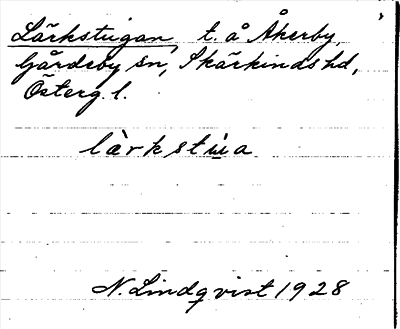 Lärkstugan, t. å Åkerby,
Gårdeby sn, Skärkinds hd,
Österg. l.
lärkstu̇a
N. Lindqvist 1928